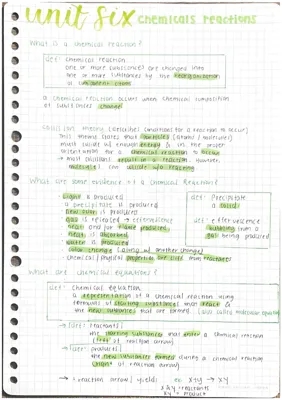 unit six chemicals reactions
what is a chemical reaction?
def: chemical reaction
one or more substances are changed into
one or more substances by the reorganization
of component atoms
a chemical reaction occurs when chemical composition
of substances changes
collision theory (describes conditions for a reaction to occur)
this theory states that particles (atoms / molecules)
must collide w/ enough energy & in the proper
orientation for a chemical reaction to occur
→ most collisions result in a reaction, however,
molecules can collide w/o reacting
what are some evidence of a chemical reaction?
light is produced
a precipitate is produced
new odor is produced
gas is released → effervescence
heat and/or flame produced
heat is absorbed
water is produced
color change (along w/ another change)
chemical/physical properties are diff than reactants
def: precipitate
a solid
def: effervescence
bubbling from a
gas being produced
what are chemical equations?
def: chemical equation
a representation of a chemical reaction using
formulas of starting substances that react &
the new substances that are formed (also called molecular equation)
→ def: reactants
the starting substances that enter a chemical reaction
(left of reaction arrow)
→ def: products
the new substances formed during a chemical reaction
(right of reaction arrow)
→ : reaction arrow / yields ex: x+y → xy
x & y = reactants
xy = product